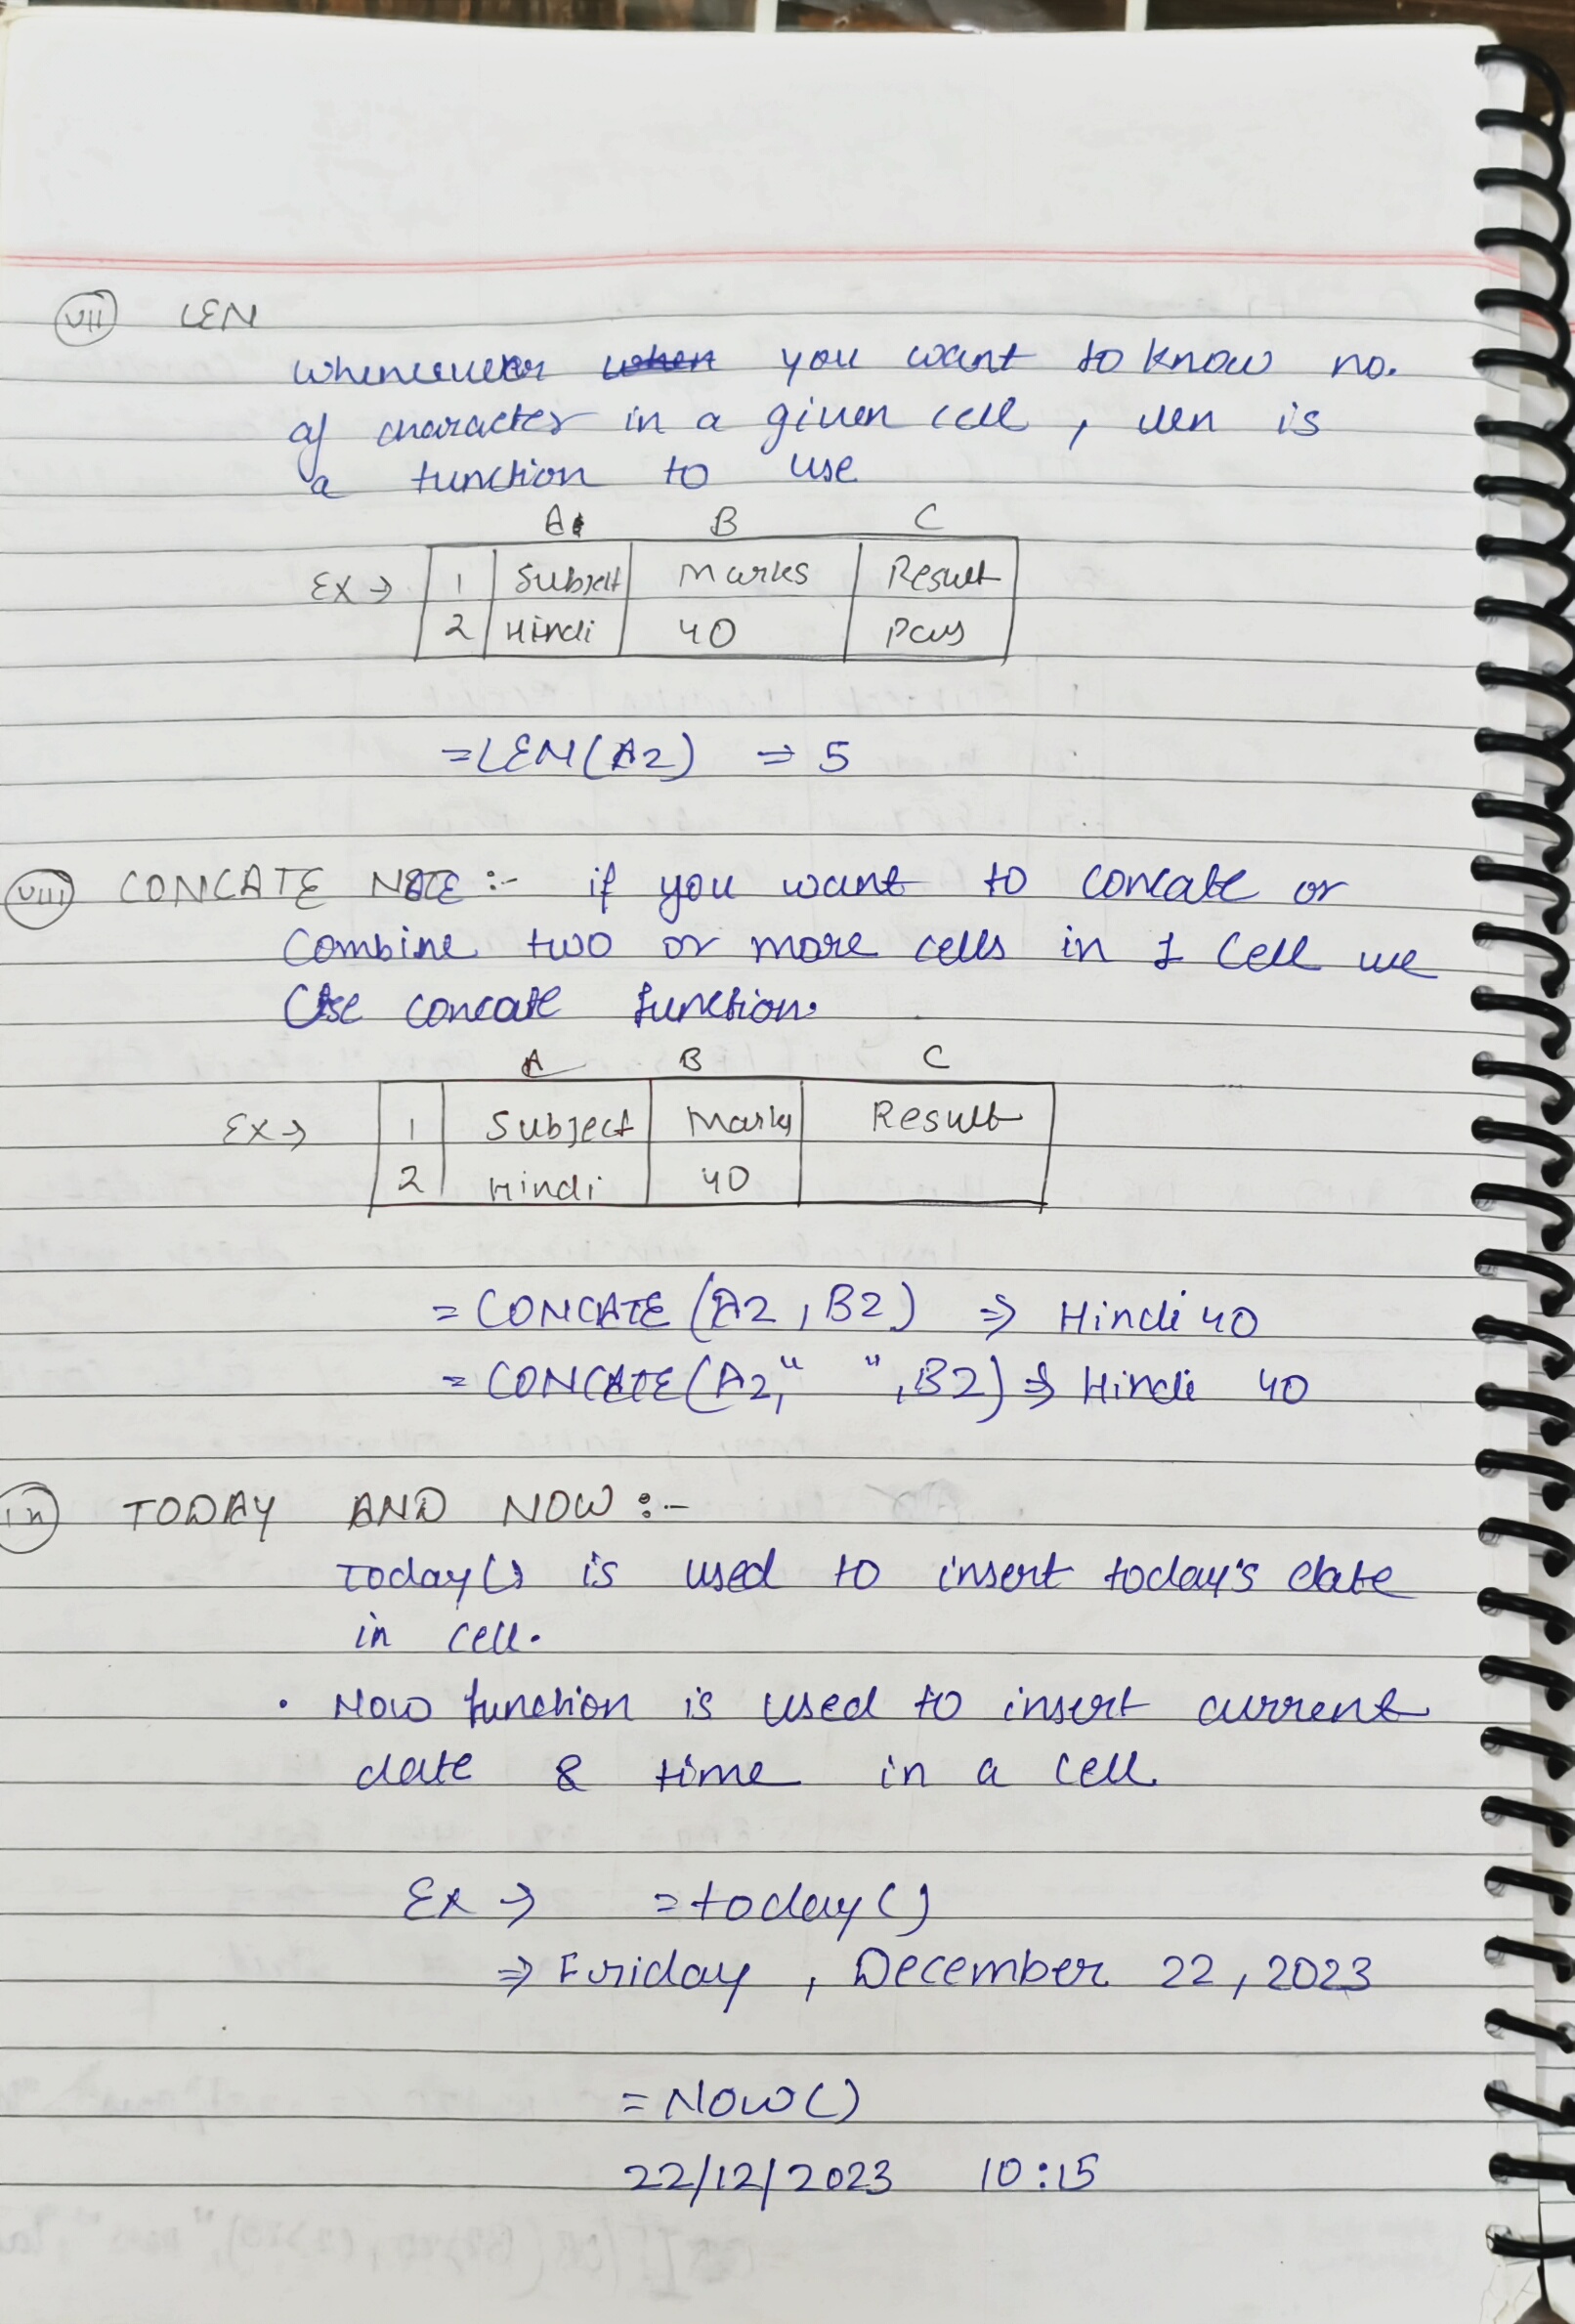 vii LEN
whenever when you want to know no.
of character in a given cell, len is
a function to use
A B C
Ex → 1 Subject Marks Result
2 Hindi 40 Pass
=LEN(A2) ⇒ 5
viii CONCATE NATE :- if you want to concate or
Combine two or more cells in 1 Cell we
Use concate function.
A B C
Ex → 1 Subject Marks Result
2 Hindi 40
= CONCATE (A2, B2) ⇒ Hindi 40
= CONCATE(A2," ",B2) ⇒ Hindi 40
ix TODAY AND NOW :-
Today() is used to insert today's date
in cell.
• Now function is used to insert current
date & time in a cell
Ex → =today()
⇒ Friday, December 22, 2023
= NOW()
22/12/2023 10:15